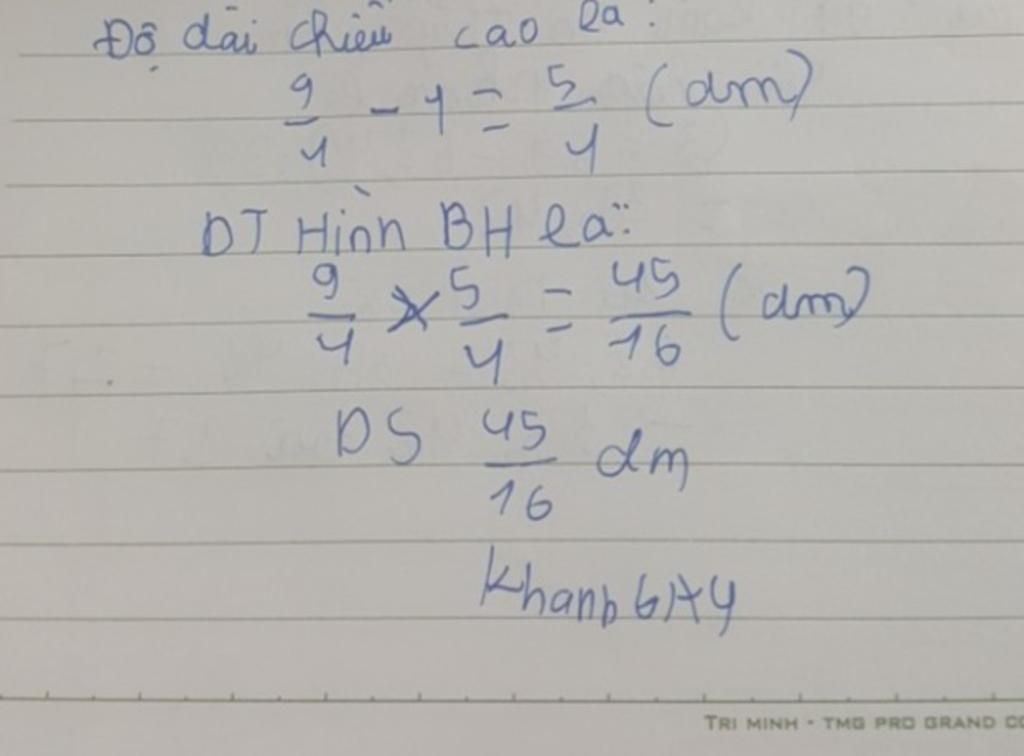 Độ dài chiều cao là:
9/4 - 1 = 5/4 (dm)
DT Hình BH là:
9/4 x 5/4 = 45/16 (dm)
DS 45/16 dm
Khanh 6A4
TRI MINH - TMG PRO GRAND CO